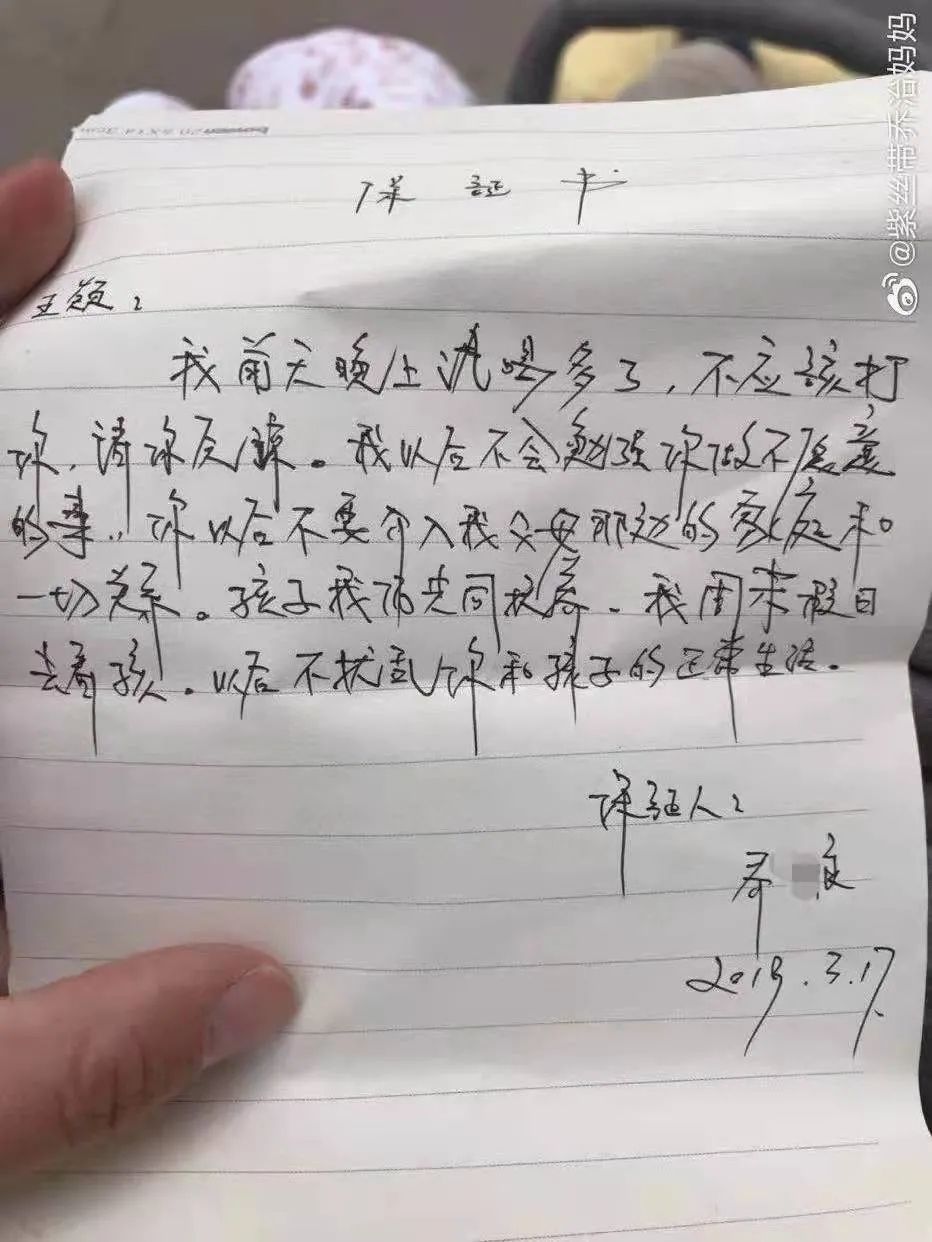 保证书
王颖：
我前天晚上酒喝多了，不应该打
你，请你原谅。我以后不会勉强你做不愿意
的事，你以后不要介入我父母那边的家庭和
一切关系。孩子我们共同抚养。我周末假日
去看孩。以后不扰乱你和孩子的正常生活。
保证人：
乔 良
2019.3.17
@紫丝带乔治妈妈